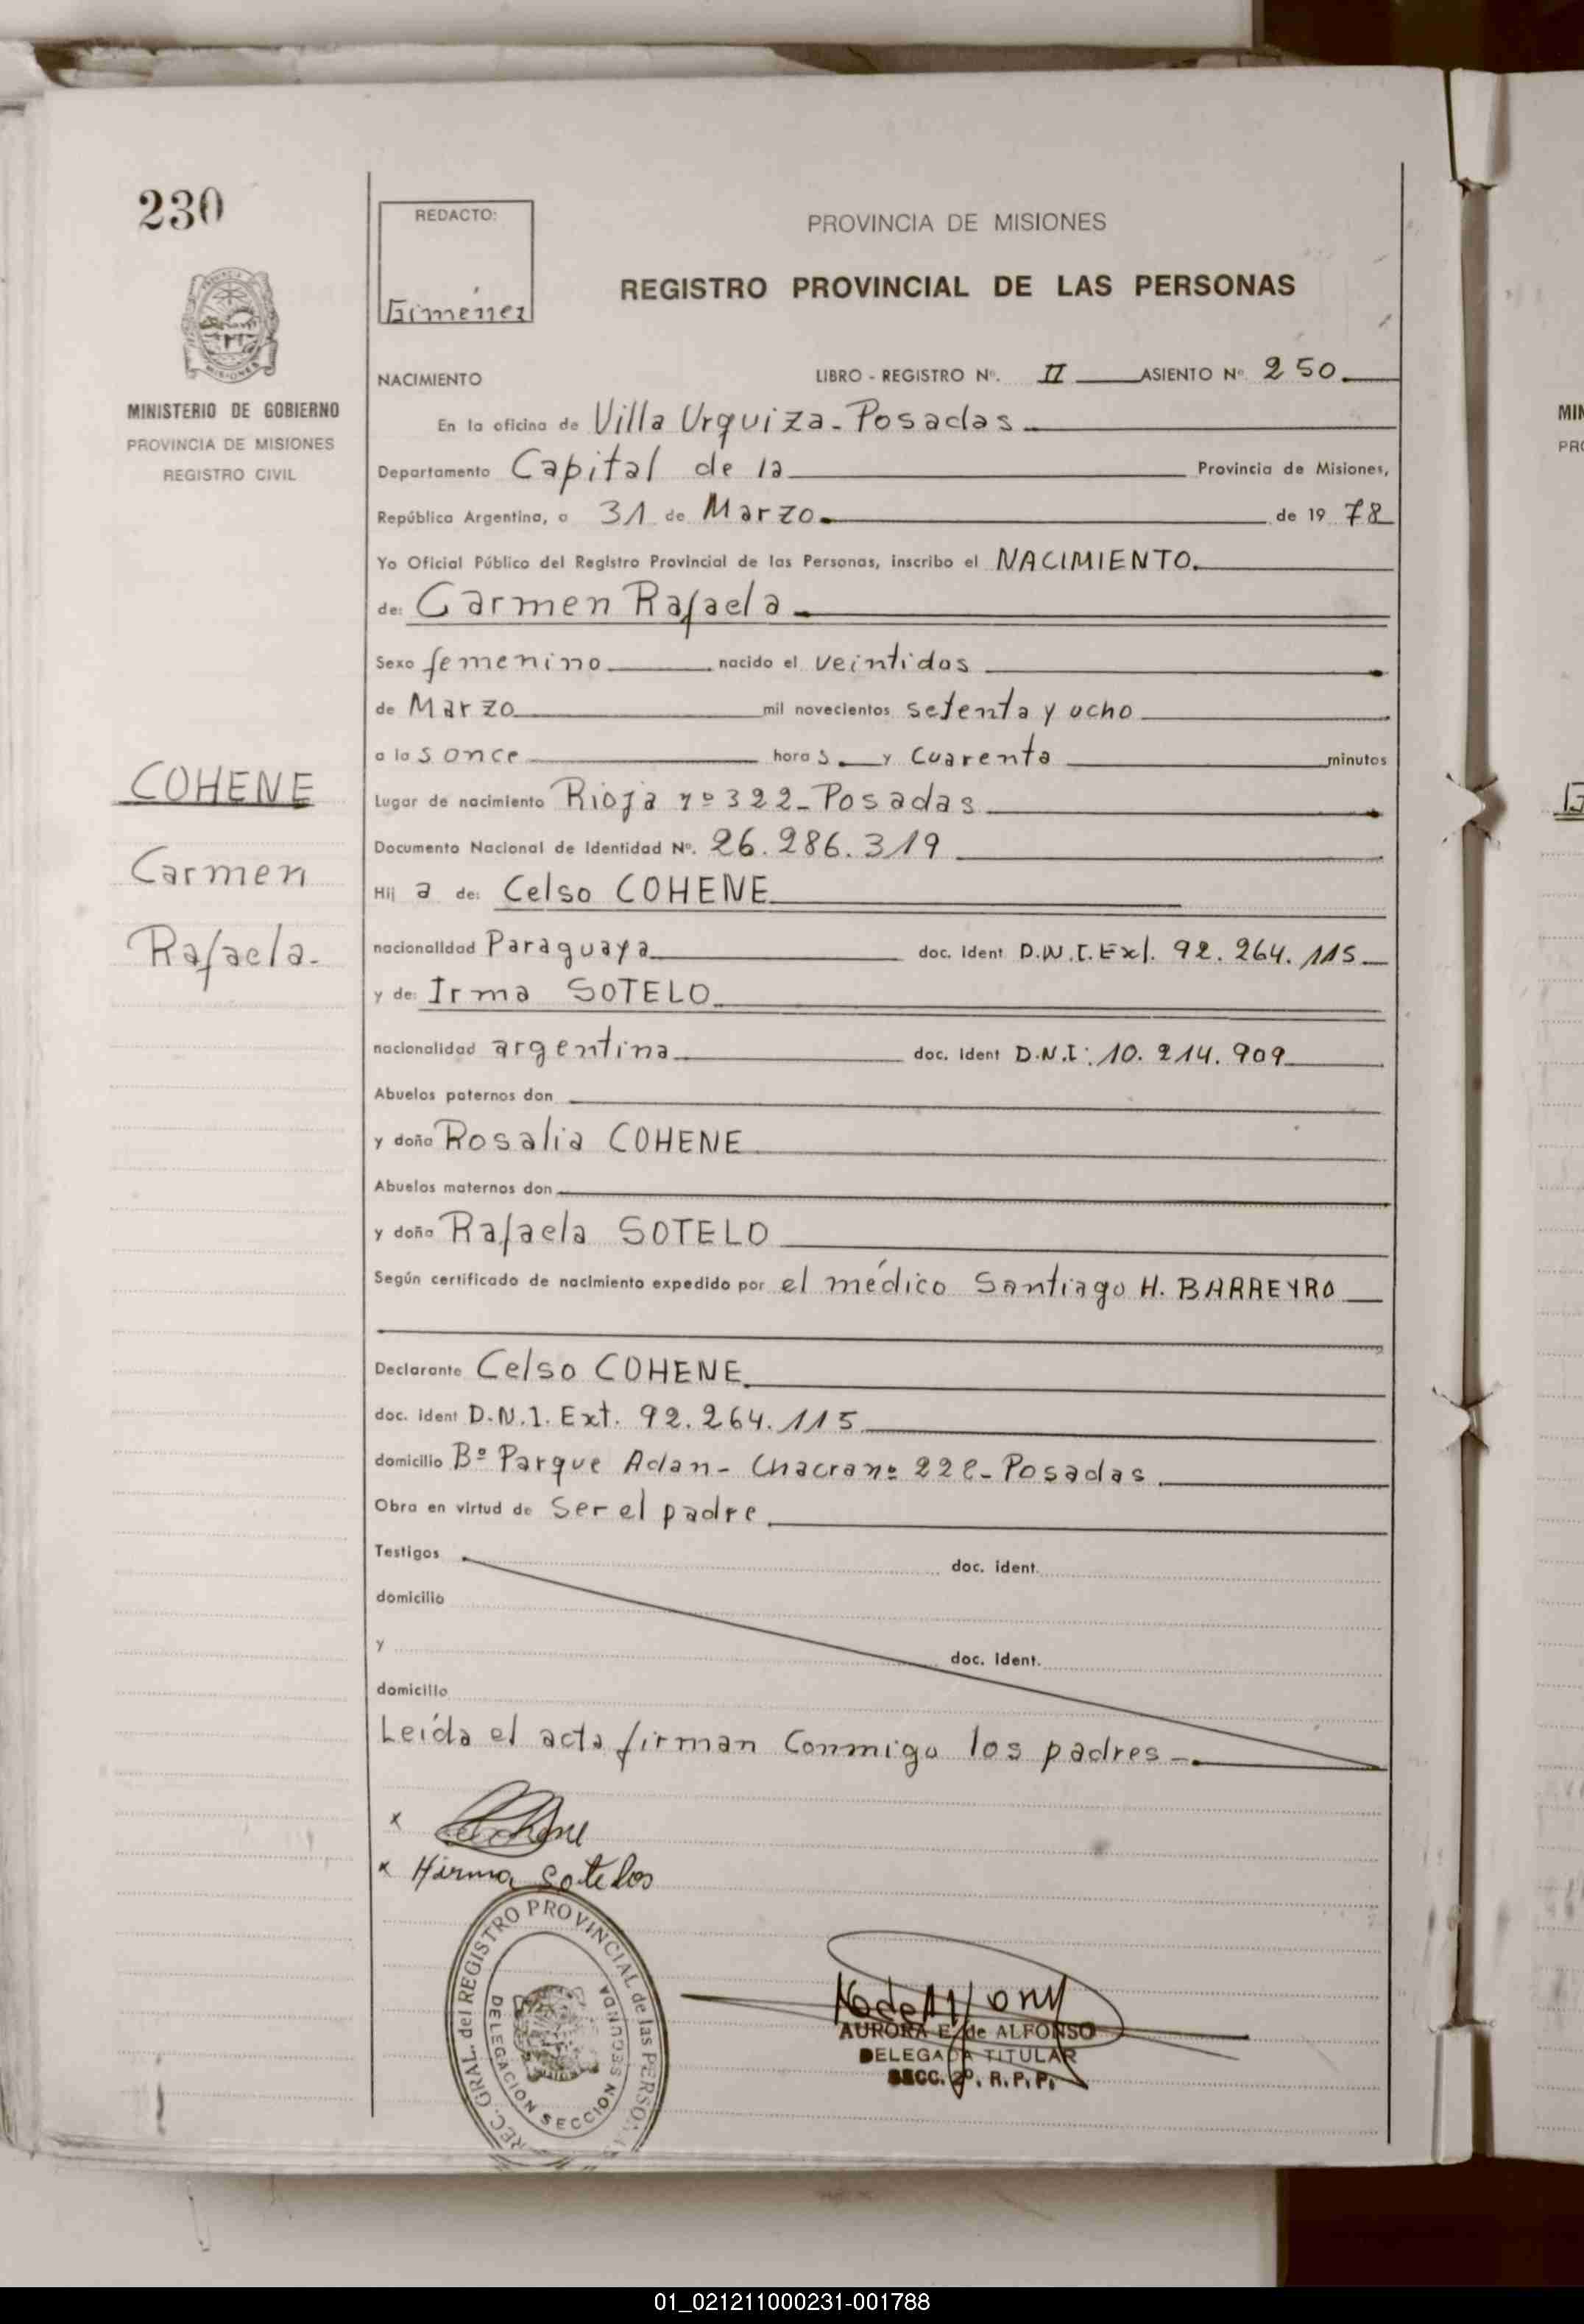 230
REDACTO:
Giménez
PROVINCIA DE MISIONES
REGISTRO PROVINCIAL DE LAS PERSONAS
MISIONES
MINISTERIO DE GOBIERNO
PROVINCIA DE MISIONES
REGISTRO CIVIL
NACIMIENTO LIBRO - REGISTRO Nº. II ASIENTO Nº 250
En la oficina de Villa Urquiza - Posadas
Departamento Capital de la Provincia de Misiones,
República Argentina, a 31 de Marzo de 1978
Yo Oficial Público del Registro Provincial de las Personas, inscribo el NACIMIENTO.
de: Carmen Rafaela
Sexo femenino nacido el veintidos
de Marzo mil novecientos setenta y ocho
a las once horas y cuarenta minutos
Lugar de nacimiento Rioja nº 322 - Posadas
Documento Nacional de Identidad Nº. 26.286.319
Hija de: Celso COHENE
nacionalidad Paraguaya doc. ident D.N.I. Ext. 92.264.115
y de: Irma SOTELO
nacionalidad argentina doc. ident D.N.I: 10.214.909
Abuelos paternos don
y doña Rosalia COHENE
Abuelos maternos don
y doña Rafaela SOTELO
Según certificado de nacimiento expedido por el médico Santiago H. BARREYRO
Declarante Celso COHENE
doc. ident D.N.I. Ext. 92.264.115
domicilio Bº Parque Adan - Chacra nº 222 - Posadas
Obra en virtud de ser el padre
Testigos doc. ident.
domicilio
y doc. ident.
domicilio
Leída el acta firman conmigo los padres -
COHENE
Carmen
Rafaela -
x
x Hirma Sotelos
REC. GRAL. del REGISTRO PROVINCIAL de las PERSONAS
DELEGACION SECCION SEGUNDA
AURORA E. de ALFONSO
DELEGADA TITULAR
SECC. 2º. R. P. P.
MIN
PRO
01_021211000231-001788